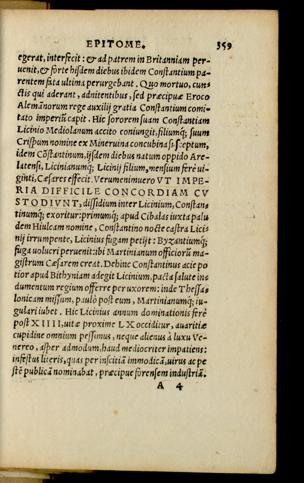 EPITOME. 359
egerat, interfecit: & ad patrem in Britanniam per-
uenit, & forte hisdem diebus ibidem Constantium pa-
rentem fata ultima perurgebant. Quo mortuo, cun-
ctis qui aderant, adnitentibus, sed præcipuæ Eroco
Alemānorum rege auxilij gratia Constantium comi-
tato imperiū capit. Hic sororem suam Constantiam
Licinio Mediolanum accito coniungit, filiumq́; suum
Crispum nomine ex Mineruina concubina susceptum,
idem Cōstantinum, ijsdem diebus natum oppido Are-
latensi, Licinianumq́; Licinij filium, mensium ferè ui-
ginti, Cæsares effecit. Verumenimuero VT IMPE-
RIA DIFFICILE CONCORDIAM CV
STODIVNT, dissidium inter Licinium, Constan
tinumq́; exoritur: primumq́; apud Cibalas iuxta palu
dem Hiulcam nomine, Constantino nocte castra Lici
nij irrumpente, Licinius fugam petijt: Byzantiumq́;
fuga uolucri peruenit: ibi Martinianum officiorū ma-
gistrum Cæsarem creat. Debinc Constantinus acie po
tior apud Bithyniam adegit Licinium, pacta salute in
dumentum regium offerre per uxorem: inde Thessa
lonicam missum, paulò post eum, Martinianumq́; iu-
gulari iubet. Hic Licinius annum dominationis ferè
post XIIII, uitæ proxime LX occiditur, auaritiæ
cupidine omnium pessimus, neque alienus à luxu Ve-
nereo, asper admodum, haud mediocriter impatiens:
infestus literis, quas per inscitiā immodicā, uirus ac pe
stē publicā nominabat, præcipue forensem industriā.
A 4